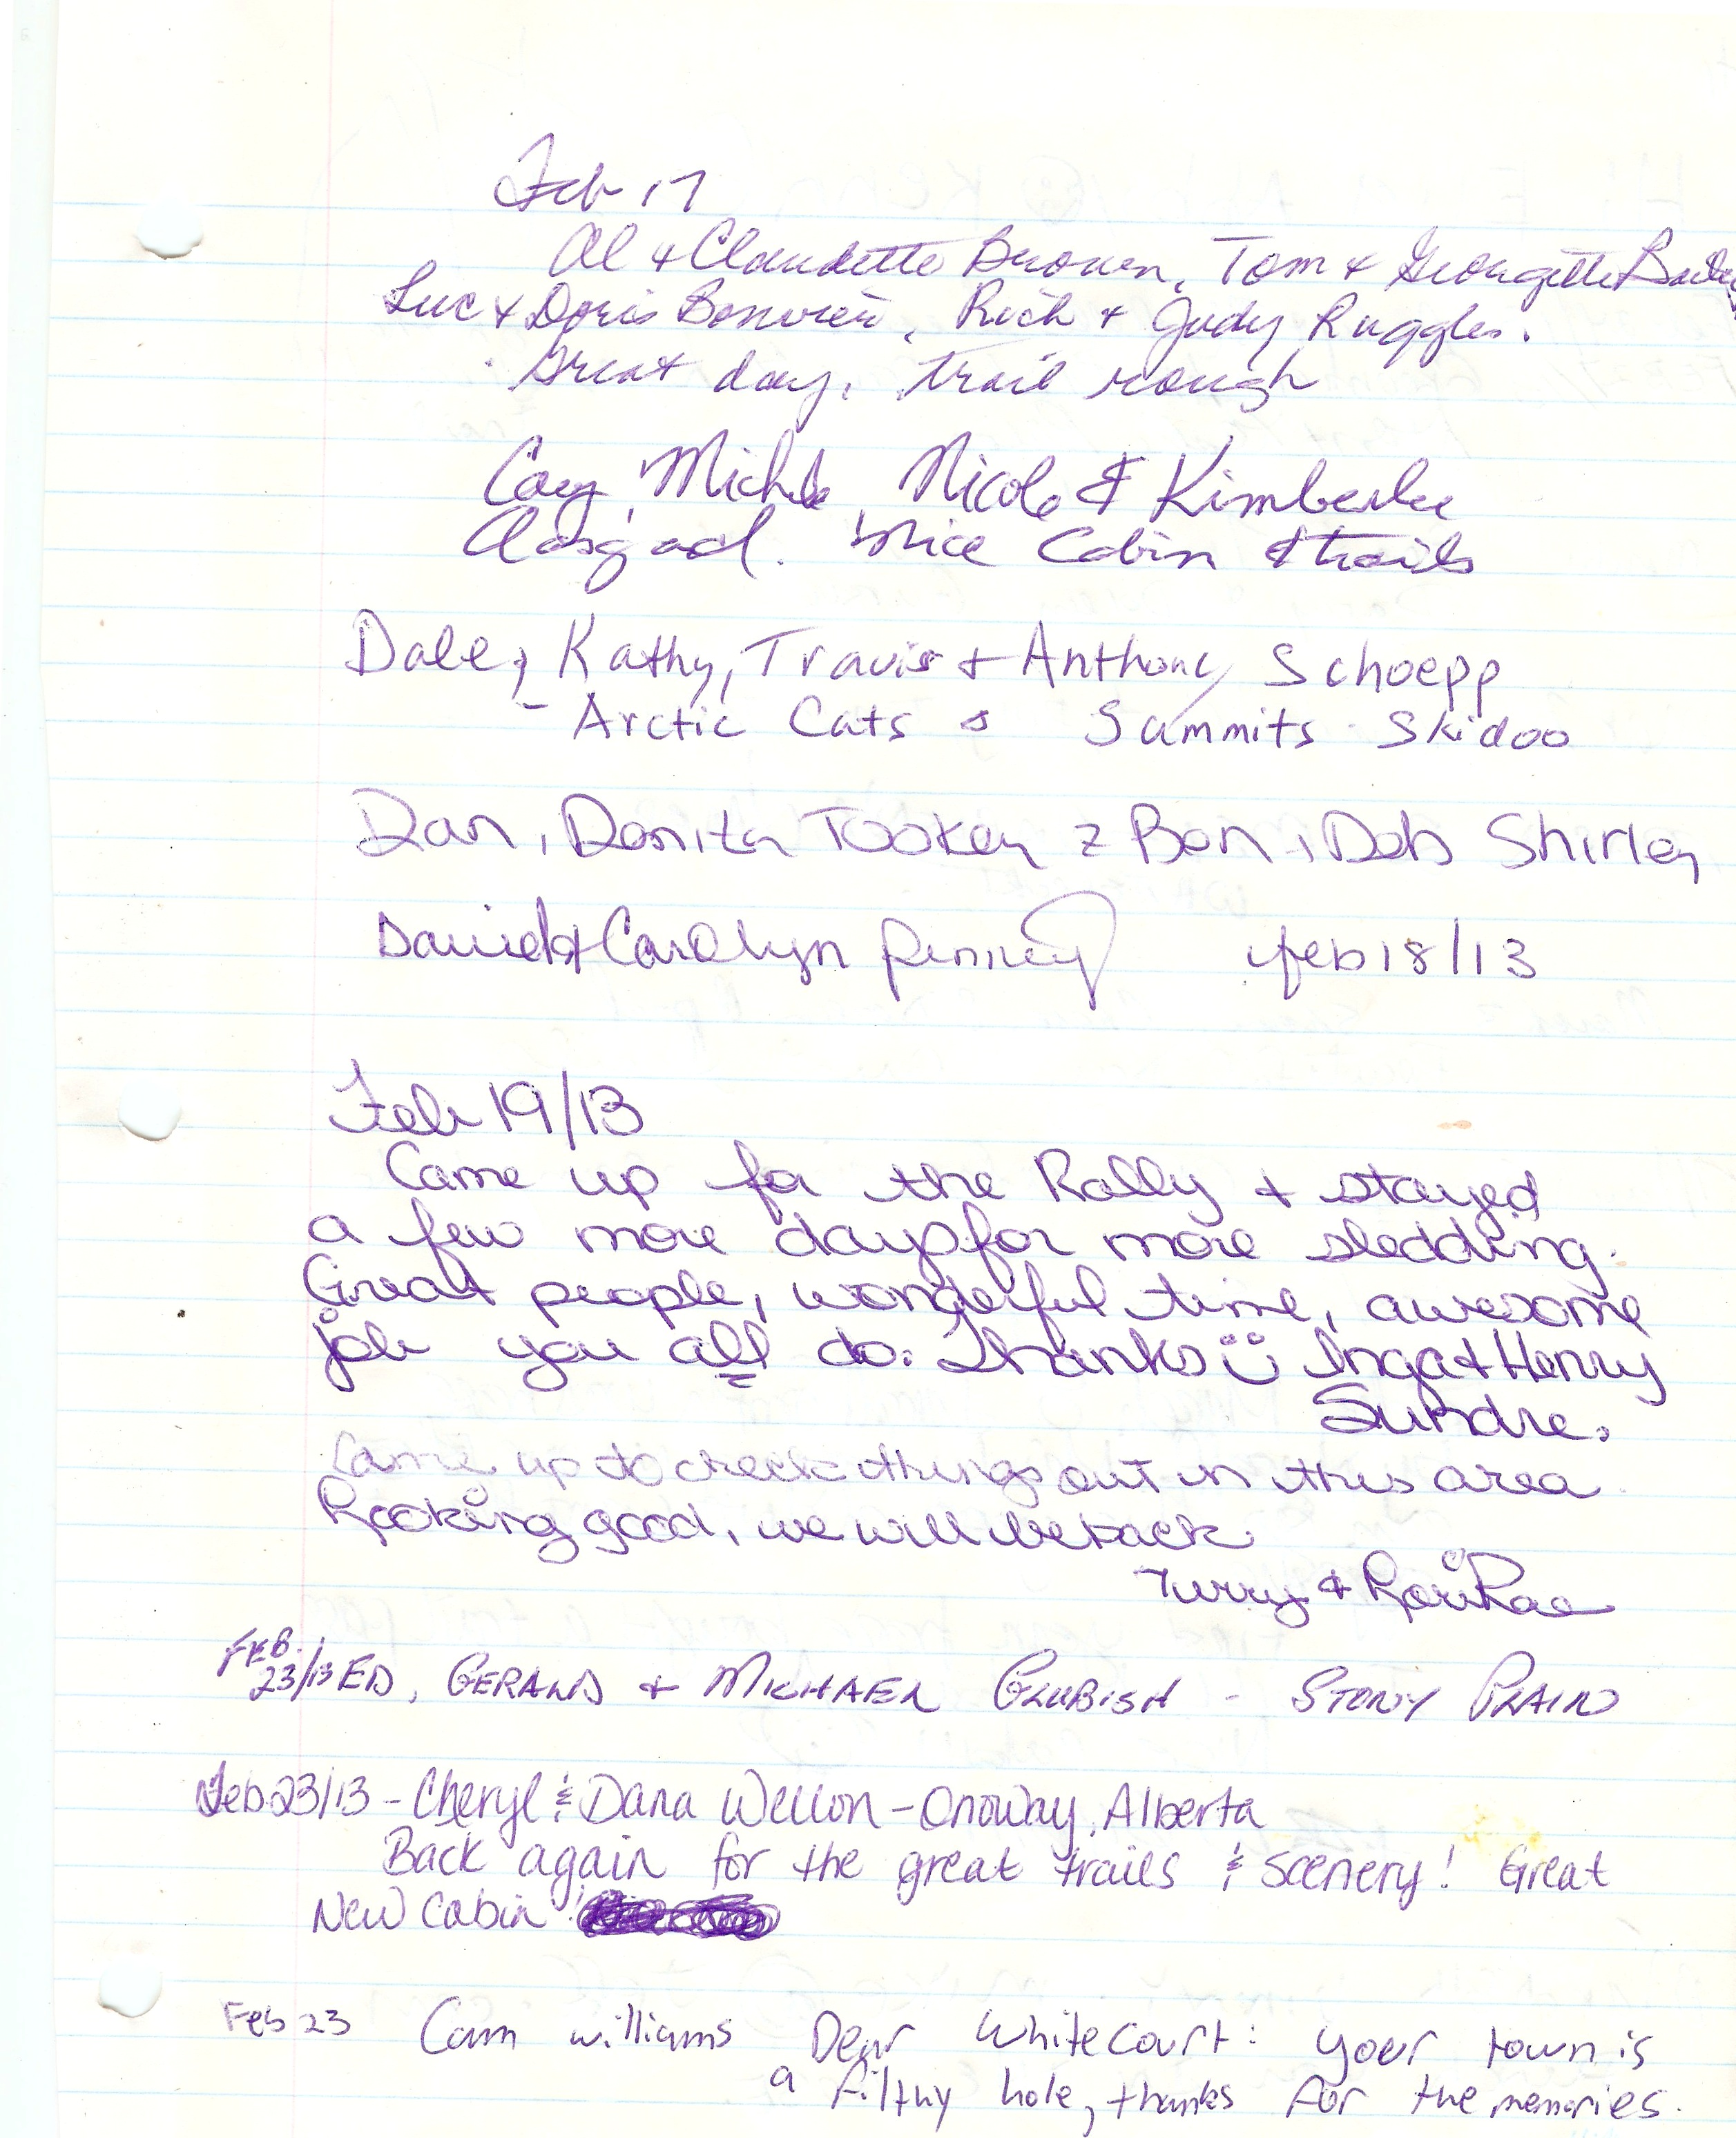 Feb 17
Al & Claudette Brown, Tom & Georgette
Luc & Doris, Rich & Judy Ruggles.
Great day, trail rough
Michele, Nicole & Kimberlee
Aasgard. Nice Cabin & trails
Dale, Kathy, Travis & Anthony Schoepp
- Arctic Cats & Summits Skidoo
Dan, Donita Tookey & Ben, Deb Shirley
Daniel & Carolyn Penney Feb 18/13
Feb 19/13
Came up for the Rally & stayed
a few more days for more sledding.
Great people, wonderful time, awesome
job you all do. Thanks Inga & Henry
Sundre.
Came up to check things out in this area.
Looking good, we will be back.
Terry & Lori Rae
FEB.
23/13 ED, GERALD & MICHAEL GLUBISH - STONY PLAIN
Feb 23/13 - Cheryl & Dana Wellon - Onoway, Alberta
Back again for the great trails & scenery! Great
New Cabin!
Feb 23 Cam Williams Dear Whitecourt: your town is
a filthy hole, thanks for the memories.